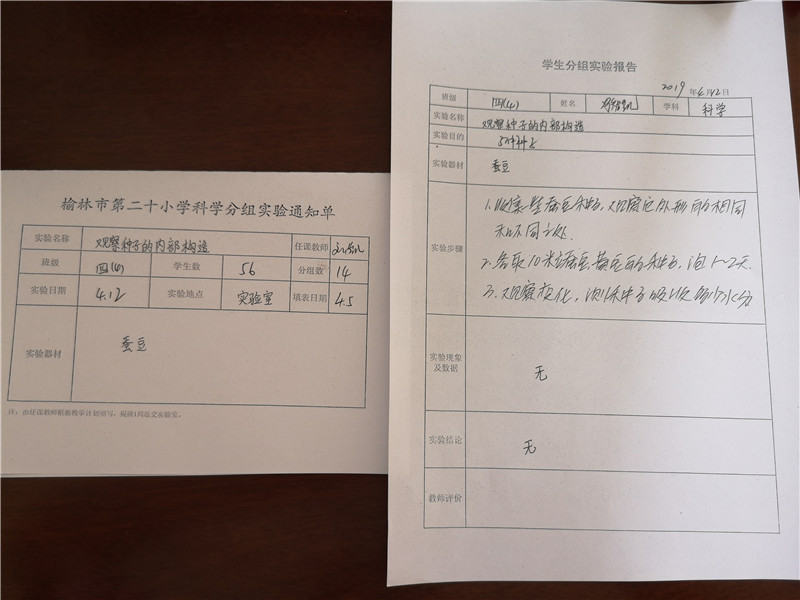 榆林市第二十小学科学分组实验通知单
实验名称 观察种子的内部构造 任课教师
班级 四(4) 学生数 56 分组数 14
实验日期 4.12 实验地点 实验室 填表日期 4.5
实验器材 蚕豆
注：由任课教师根据教学计划填写，提前1周送交实验室。
学生分组实验报告
2019 年 4 月 12 日
班级 四(4) 姓名 学科 科学
实验名称 观察种子的内部构造
实验目的
实验器材 蚕豆
实验步骤
1.收集一些蚕豆种子，观察它外形的相同
和不同之处。
2.各取10粒蚕豆、黄豆的种子，泡1~2天
3.观察变化，测种子吸收多少水分
实验现象及数据 无
实验结论 无
教师评价